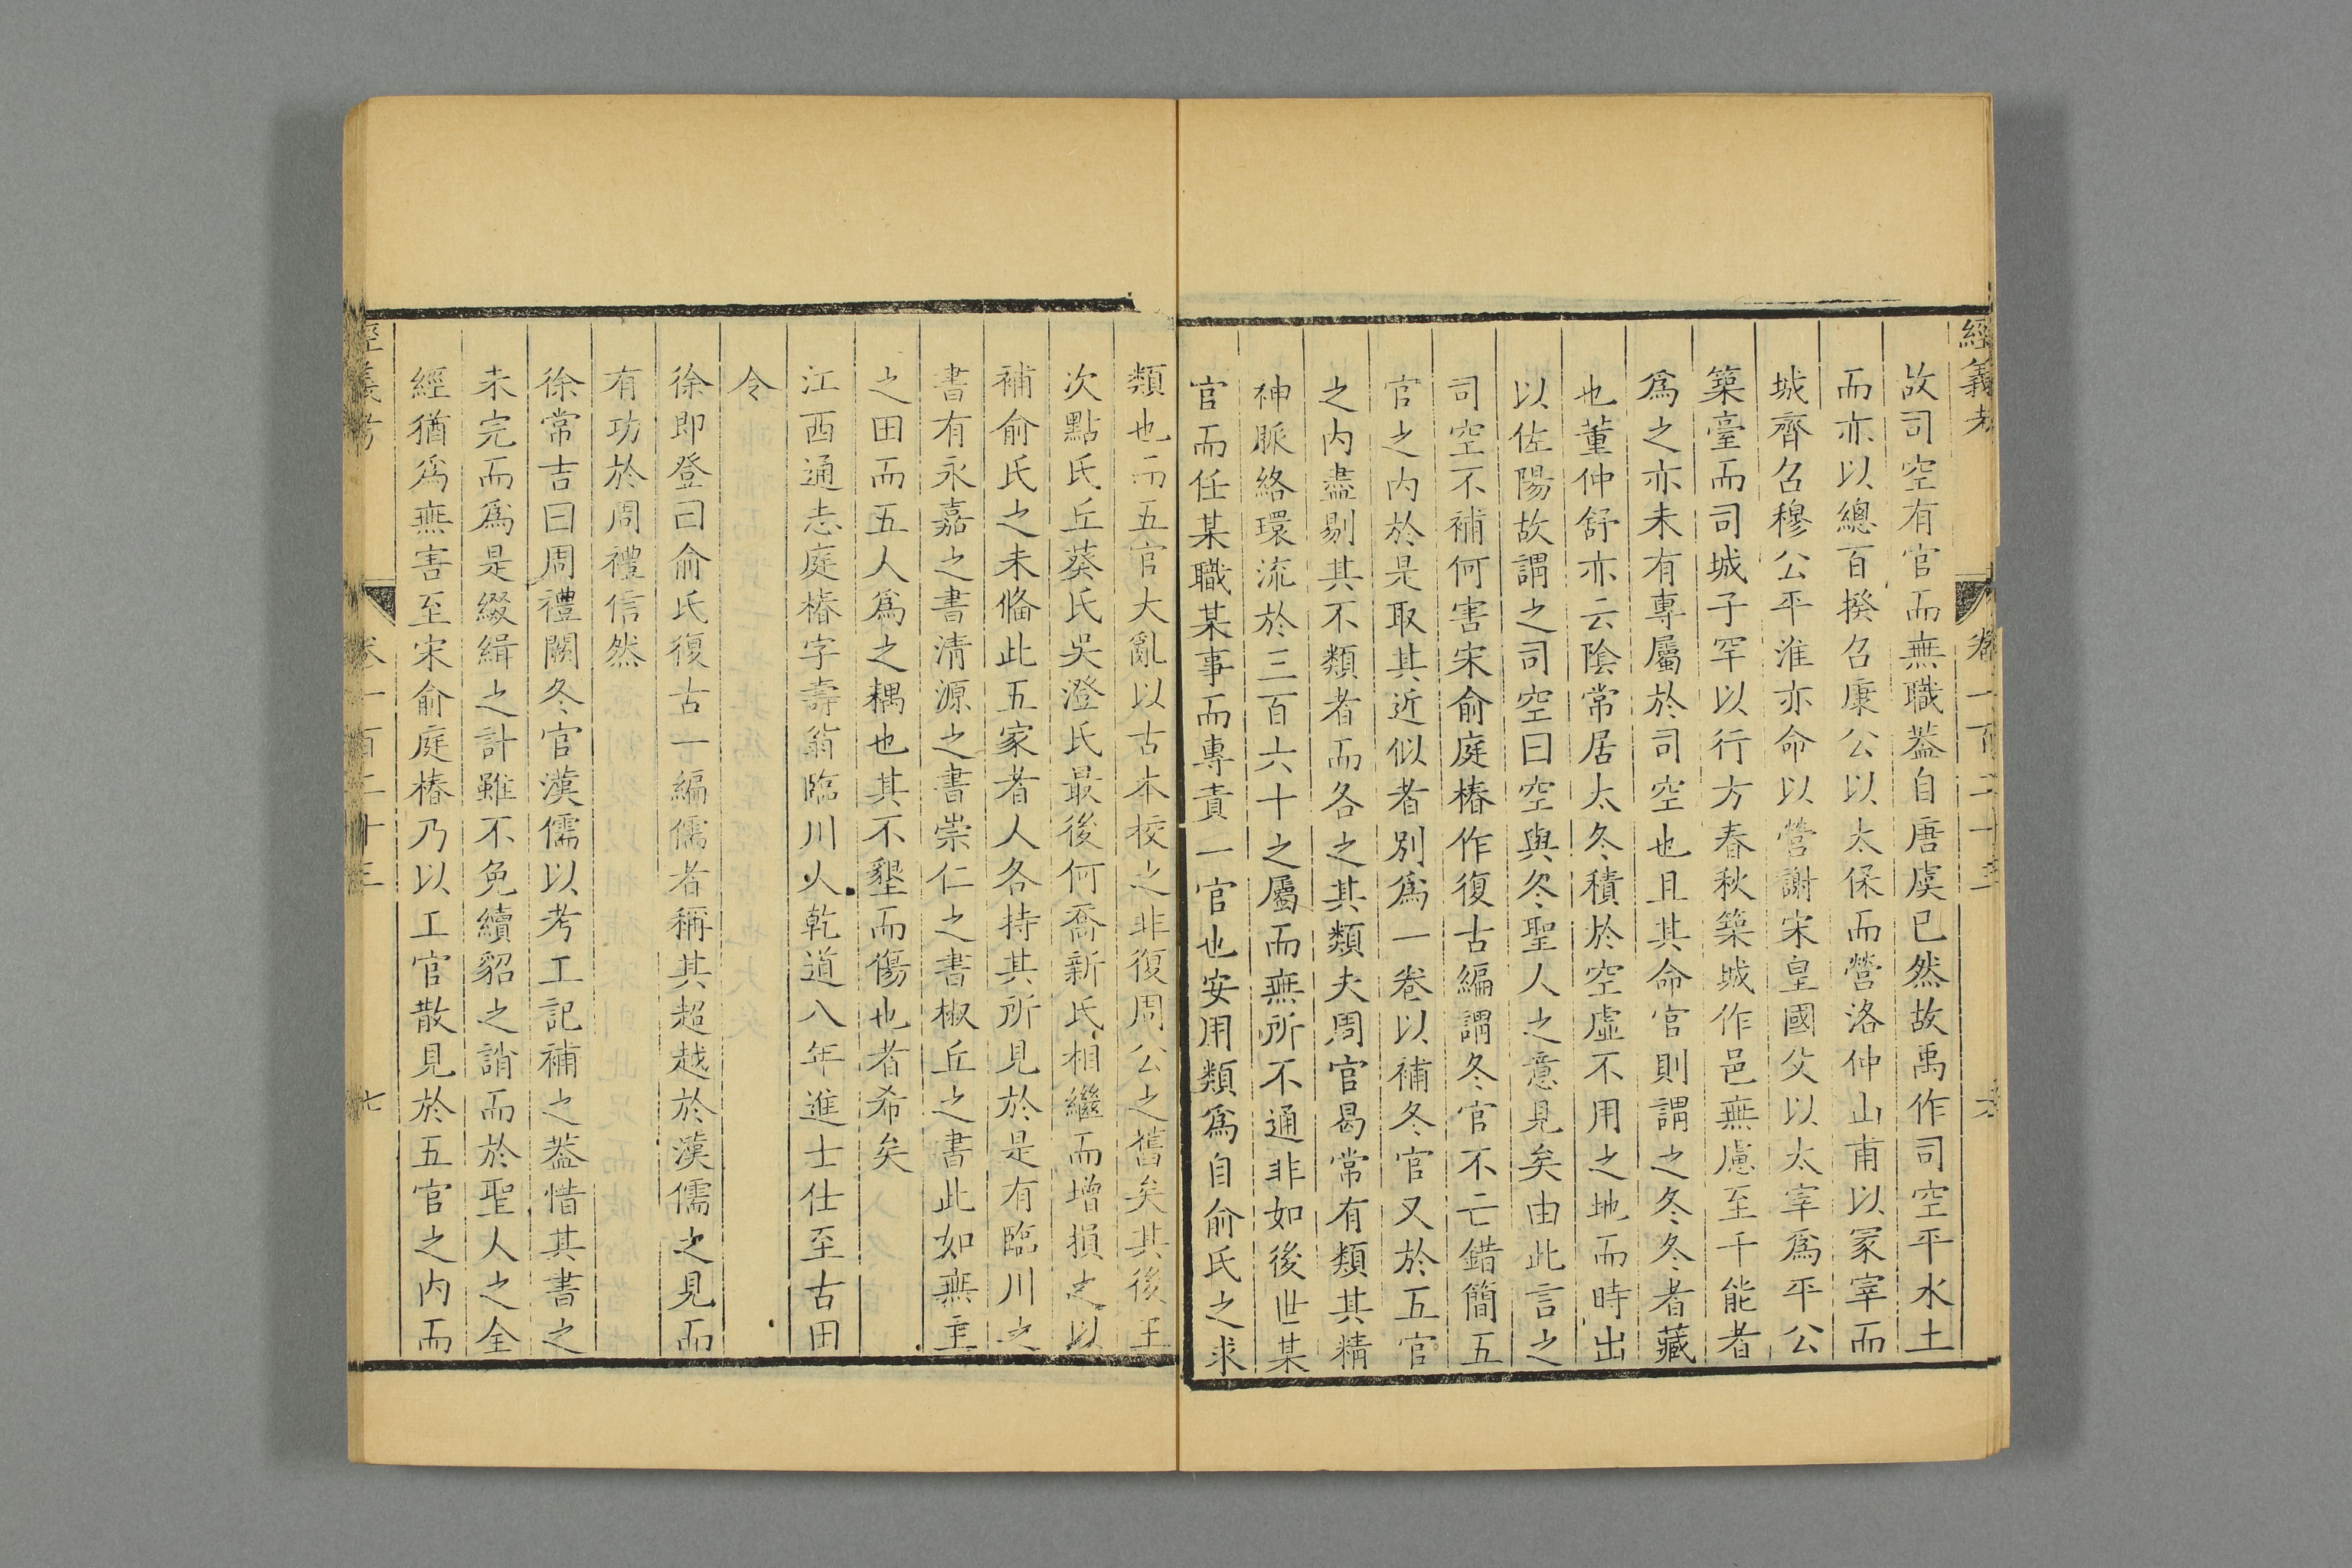 經義考
卷一百二十三
故司空有官而無職葢自唐虞已然故禹作司空平水土
而亦以總百揆召康公以太保而營洛仲山甫以冢宰而
城齊召穆公平淮亦命以營謝宋皇國父以太宰爲平公
築臺而司城子罕以行方春秋築城作邑無慮至千能者
爲之亦未有專屬於司空也且其命官則謂之冬冬者藏
也董仲舒亦云陰常居太冬積於空虛不用之地而時出
以佐陽故謂之司空曰空與冬聖人之意見矣由此言之
司空不補何害宋俞庭椿作復古編謂冬官不亡錯簡五
官之内於是取其近似者別爲一卷以補冬官又於五官
之内盡剔其不類者而各之其類夫周官曷常有類其精
神脈絡環流於三百六十之屬而無所不通非如後世某
官而任某職某事而專責一官也安用類爲自俞氏之求
類也而五官大亂以古本校之非復周公之舊矣其後王
次點氏丘葵氏吳澄氏最後何喬新氏相繼而增損之以
補俞氏之未俻此五家者人各持其所見於是有臨川之
書有永嘉之書清源之書崇仁之書椒丘之書此如無主
之田而五人爲之耦也其不墾而傷也者希矣
江西通志庭椿字壽翁臨川人乾道八年進士仕至古田
令
徐即登曰俞氏復古一編儒者稱其超越於漢儒之見而
有功於周禮信然
徐常吉曰周禮闕冬官漢儒以考工記補之葢惜其書之
未完而爲是綴緝之計雖不免續貂之誚而於聖人之全
經猶爲無害至宋俞庭椿乃以工官散見於五官之内而
經義考
卷一百二十三
七